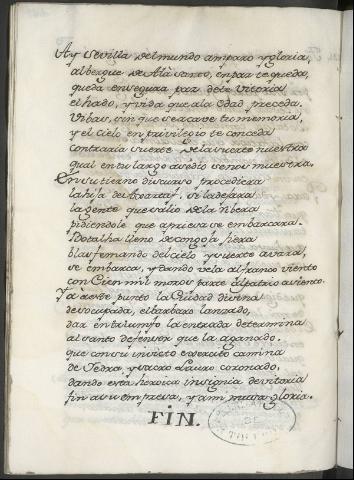 Ay Sevilla del mundo amparo y gloria
albergue de Alà santo, en paz te queda,
queda en segura paz dete vitoria
el hado, y vida que a la edad preceda.
Vibas, sin que se acave tu memoria,
y el cielo en privilegio te conceda
contraria suerte de la suerte nuestra
qual en tu largo asedio se nos muestra.
En su tierno discurso procediera
la hija de Axataf, si la dejara
la gente que salio de la ribera
pidiendole que apriesa se embarcara.
Botalha lleno de congoja fiera
blasfemando del cielo y suerte avara,
se embarca, y dando vela al franco viento
con Cien mil moros parte al patrio asiento.
Ya a este punto la Ciudad divina
desocupada, el barbaro lanzado,
dar en triumfo la entrada determina
al santo defensor que la a ganado.
que con su invicto exercito camina
de Yedra, y sacro Lauro coronado,
dando esta heroica insignia de vitoria
fin a su empresa, y a mi musa gloria.
FIN.